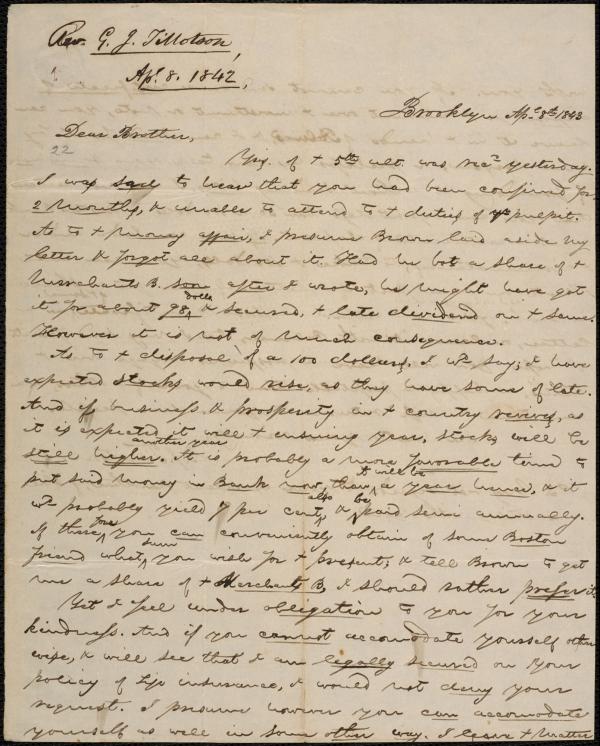 Rev. G. J. Tillotson,
Apl. 8. 1842,
Brooklyn Apl. 8th 1843
Dear Brother,
22
Yrs. of + 5th ult. was recd yesterday.
I was sorry to hear that you had been confined for
2 months, & unable to attend to + duties of yr pulpit.
As to + money affair, I presume Brown laid aside my
letter & forgot all about it. Had he bot a share of +
Merchants B. soon after I wrote, he might have got
it for about 98, dolls & secured, + late dividend on + same.
However it is not of much consequence.
As to + disposal of a 100 dollars, I wd say; I have
expected stocks would rise, as they have some of late.
And if business & prosperity in + country revives, as
it is expected it will + ensuing year, stocks will be
still higher another year. It is probably a more favorable time to
put said money in Bank now, than it will be a year hence, & it
wd probably yield 7 per cent, also & be paid semi annually.
If therefore you can conveniently obtain of some Boston
friend what sum you wish for + present; & tell Brown to get
me a share of + Merchants B, I should rather prefer it.
Yet I feel under obligation to you for your
kindness. And if you cannot accomodate yourself other
wise, & will see that I am legally secured on your
policy of Life insurance, I would not deny your
request. I presume however you can accomodate
yourself as well in some other way. I leave + matter